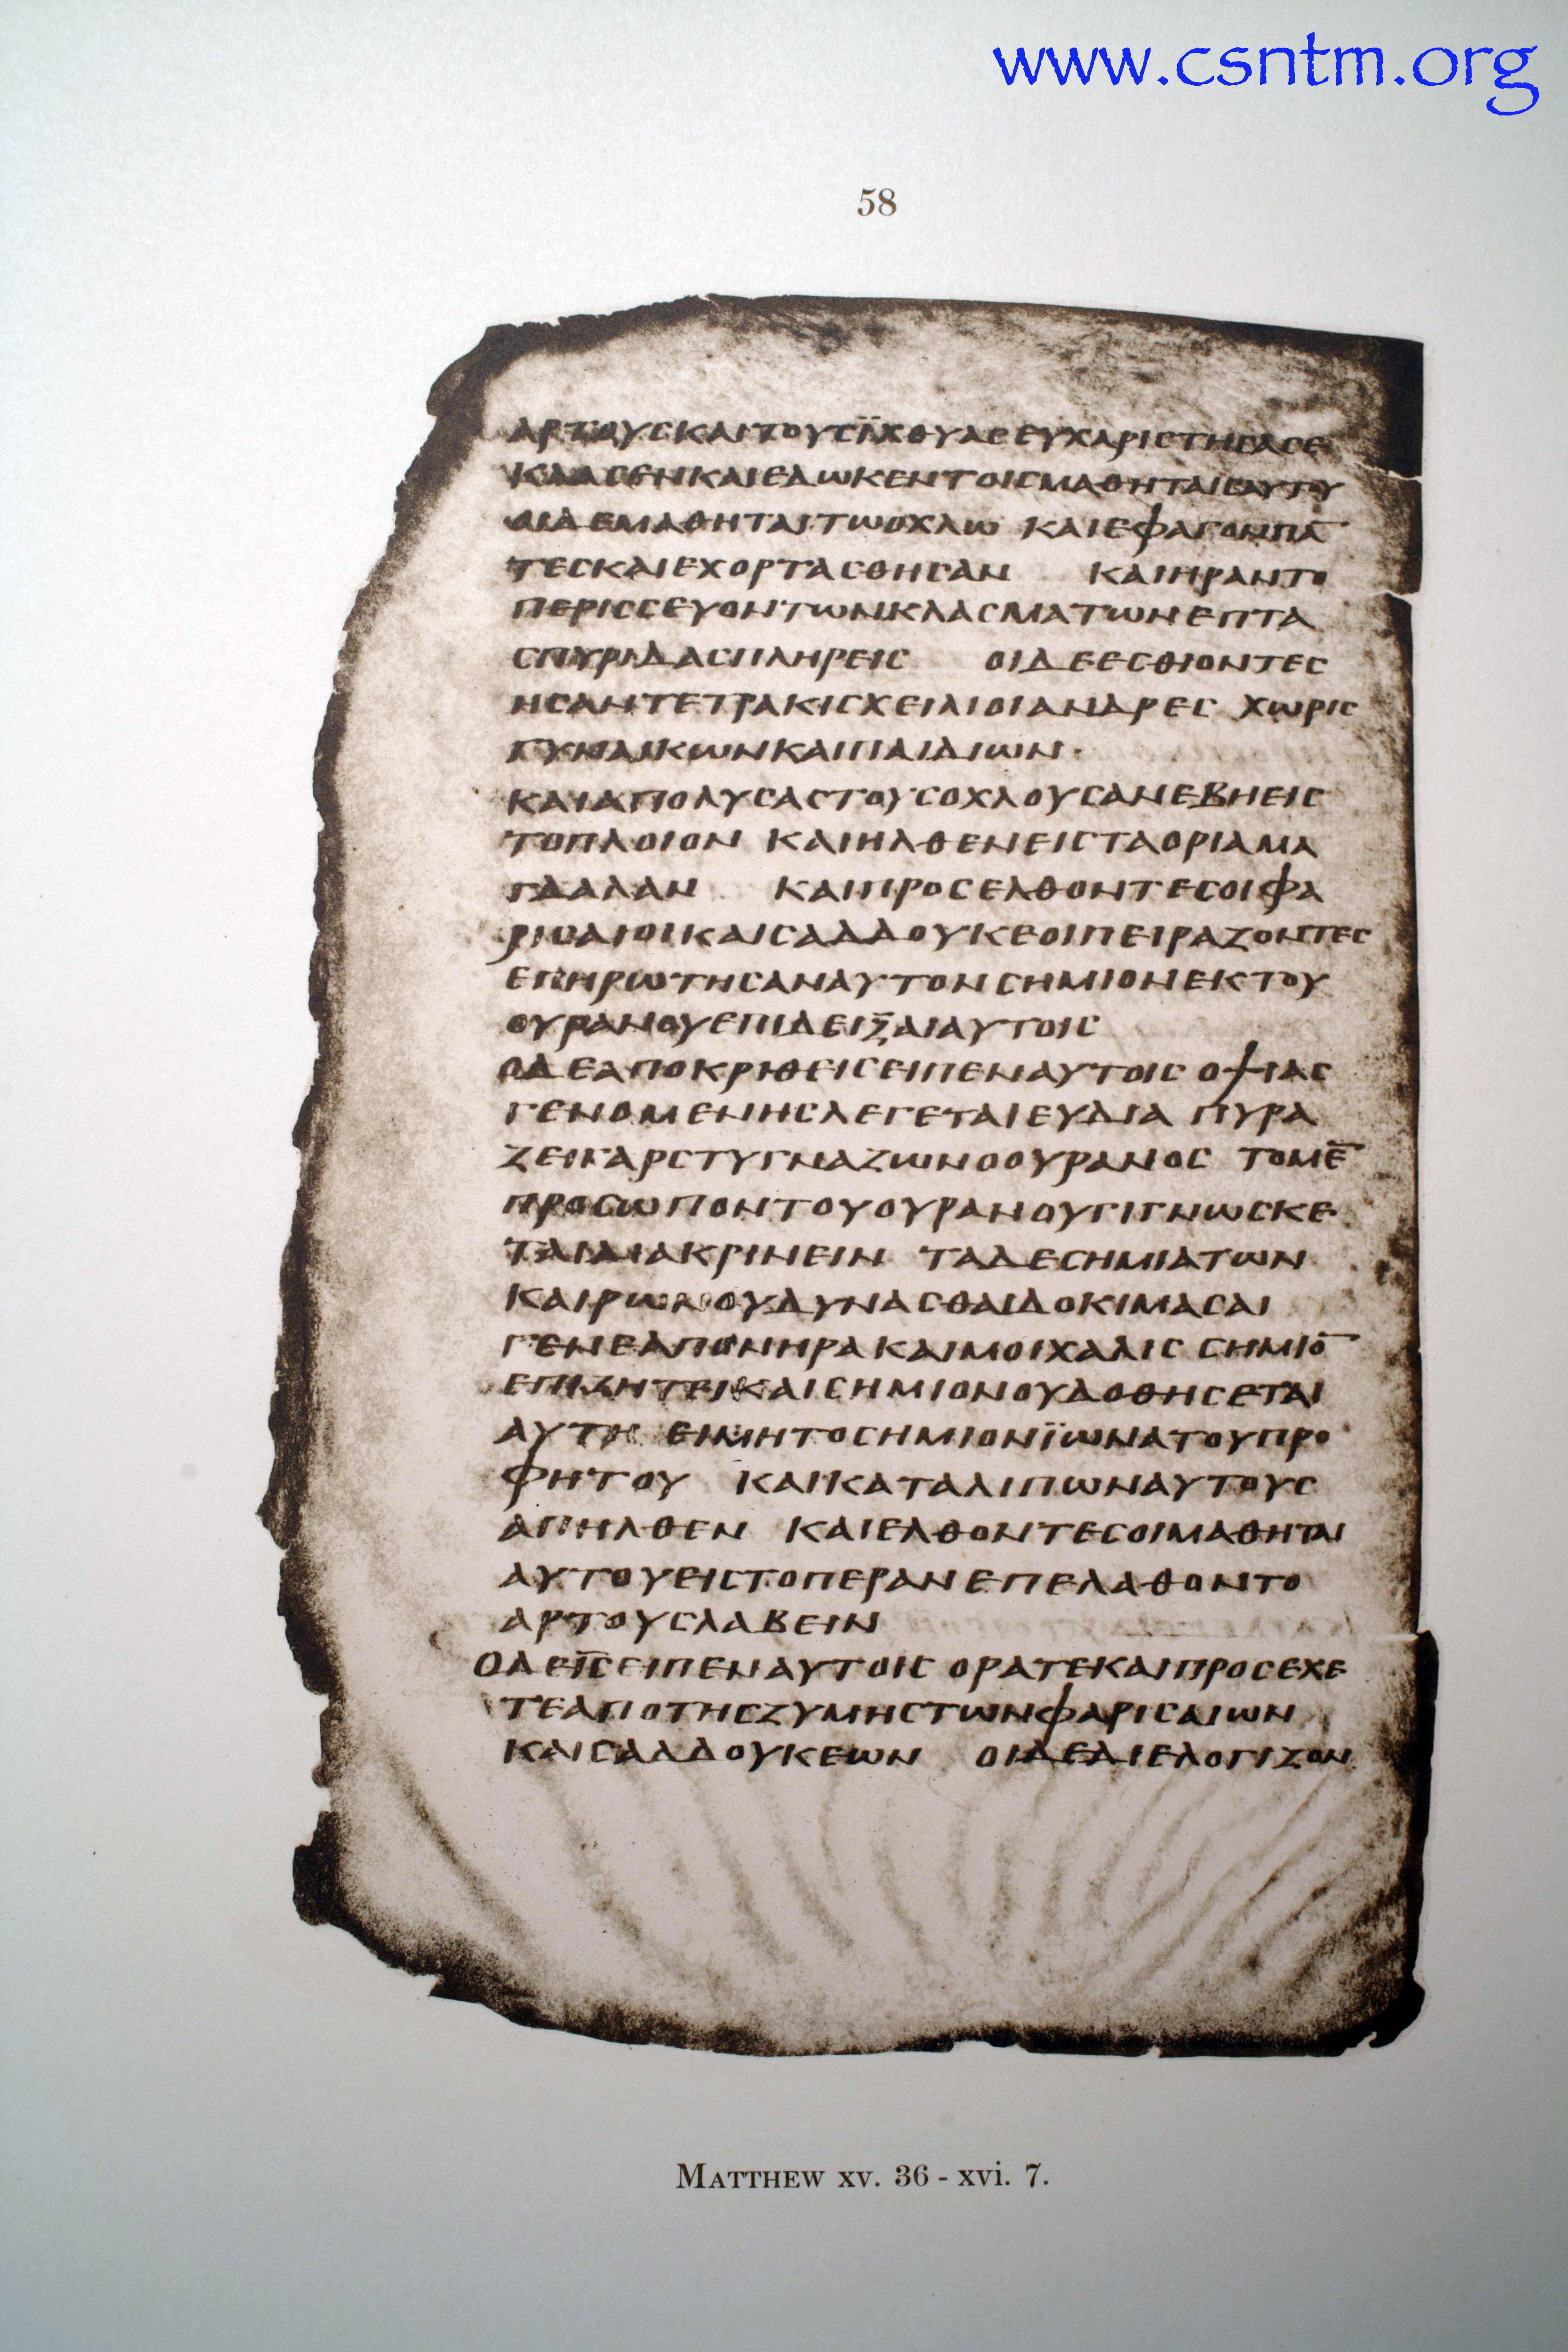 www.csntm.org
58
ΑΡΤΟΥϹΚΑΙΤΟΥϹΪΧΘΥΑϹΕΥΧΑΡΙϹΤΗϹΑϹΕ
ΚΛΑϹΕΝΚΑΙΕΔΩΚΕΝΤΟΙϹΜΑΘΗΤΑΙϹΑΥΤΟΥ
ΟΙΔΕΜΑΘΗΤΑΙΤΩΟΧΛΩ ΚΑΙΕΦΑΓΟΝΠΑ̅
ΤΕϹΚΑΙΕΧΟΡΤΑϹΘΗϹΑΝ ΚΑΙΗΡΑΝΤΟ
ΠΕΡΙϹϹΕΥΟΝΤΩΝΚΛΑϹΜΑΤΩΝΕΠΤΑ
ϹΠΥΡΙΔΑϹΠΛΗΡΕΙϹ ΟΙΔΕΕϹΘΙΟΝΤΕϹ
ΗϹΑΝΤΕΤΡΑΚΙϹΧΕΙΛΙΟΙΑΝΔΡΕϹ ΧΩΡΙϹ
ΓΥΝΑΙΚΩΝΚΑΙΠΑΙΔΙΩΝ·
ΚΑΙΑΠΟΛΥϹΑϹΤΟΥϹΟΧΛΟΥϹΑΝΕΒΗΕΙϹ
ΤΟΠΛΟΙΟΝ ΚΑΙΗΛΘΕΝΕΙϹΤΑΟΡΙΑΜΑ
ΓΔΑΛΑΝ ΚΑΙΠΡΟϹΕΛΘΟΝΤΕϹΟΙΦΑ
ΡΙϹΑΙΟΙΚΑΙϹΑΔΔΟΥΚΕΟΙΠΕΙΡΑΖΟΝΤΕϹ
ΕΠΗΡΩΤΗϹΑΝΑΥΤΟΝϹΗΜΙΟΝΕΚΤΟΥ
ΟΥΡΑΝΟΥΕΠΙΔΕΙΞΑΙΑΥΤΟΙϹ
ΟΔΕΑΠΟΚΡΙΘΕΙϹΕΙΠΕΝΑΥΤΟΙϹ ΟΨΙΑϹ
ΓΕΝΟΜΕΝΗϹΛΕΓΕΤΑΙΕΥΔΙΑ ΠΥΡΑ
ΖΕΙΓΑΡϹΤΥΓΝΑΖΩΝΟΟΥΡΑΝΟϹ ΤΟΜΕ̅
ΠΡΟϹΩΠΟΝΤΟΥΟΥΡΑΝΟΥΓΙΓΝΩϹΚΕ
ΤΑΙΔΙΑΚΡΙΝΕΙΝ ΤΑΔΕϹΗΜΙΑΤΩΝ
ΚΑΙΡΩΝΟΥΔΥΝΑϹΘΑΙΔΟΚΙΜΑϹΑΙ
ΓΕΝΕΑΠΟΝΗΡΑΚΑΙΜΟΙΧΑΛΙϹ ϹΗΜΙΟ̅
ΕΠΙΖΗΤΕΙΚΑΙϹΗΜΙΟΝΟΥΔΟΘΗϹΕΤΑΙ
ΑΥΤΗ ΕΙΜΗΤΟϹΗΜΙΟΝΪΩΝΑΤΟΥΠΡΟ
ΦΗΤΟΥ ΚΑΙΚΑΤΑΛΙΠΩΝΑΥΤΟΥϹ
ΑΠΗΛΘΕΝ ΚΑΙΕΛΘΟΝΤΕϹΟΙΜΑΘΗΤΑΙ
ΑΥΤΟΥΕΙϹΤΟΠΕΡΑΝΕΠΕΛΑΘΟΝΤΟ
ΑΡΤΟΥϹΛΑΒΕΙΝ
ΟΔΕΙ̅Ϲ̅ΕΙΠΕΝΑΥΤΟΙϹ ΟΡΑΤΕΚΑΙΠΡΟϹΕΧΕ
ΤΕΑΠΟΤΗϹΖΥΜΗϹΤΩΝΦΑΡΙϹΑΙΩΝ
ΚΑΙϹΑΔΔΟΥΚΕΩΝ ΟΙΔΕΔΙΕΛΟΓΙΖΟΝ
MATTHEW XV. 36 - XVI. 7.